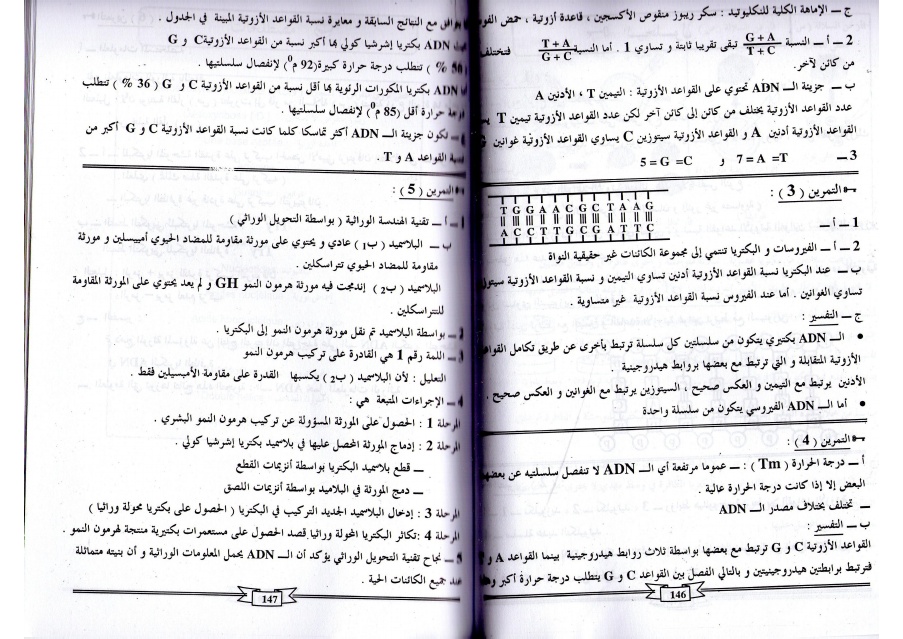 ج ــ الإماهة الكلية للنكليوتيد : سكر ريبوز منقوص الأكسجين ، قاعدة أزوتية ، حمض
2 ــ أ ــ النسبة G+A / T+C تبقى تقريبا ثابتة و تساوي 1 . أما النسبة T+A / G+C فتختلف
من كائن لآخر.
ب ــ جزيئة الــ ADN تحتوي على القواعد الأزوتية : التيمين T ، الأدنين A
عدد القواعد الأزوتية يختلف من كائن إلى كائن آخر لكن عدد القواعد الأزوتية تيمين T
القواعد الأزوتية أدنين A و القواعد الأزوتية سيتوزين C يساوي القواعد الأزوتية غوانين G
3 ــ 7 = A =T و 5 = G =C
التمرين ( 3 ) :
1 ــ أ ــ
T G G A A C G C T A A G
A C C T T G C G A T T C
2 ــ أ ــ الفيروسات و البكتريا تنتمي إلى مجموعة الكائنات غير حقيقية النواة
ب ــ عند البكتريا نسبة القواعد الأزوتية أدنين تساوي التيمين و نسبة القواعد الأزوتية
تساوي الغوانين . أما عند الفيروس نسبة القواعد الأزوتية غير متساوية .
ج ــ التفسير :
• الــ ADN بكتيري يتكون من سلسلتين كل سلسلة ترتبط بأخرى عن طريق تكامل
الأزوتية المتقابلة و التي ترتبط مع بعضها بروابط هيدروجينية .
الأدنين يرتبط مع التيمين و العكس صحيح ، السيتوزين يرتبط مع الغوانين و العكس صحيح .
• أما الــ ADN الفيروسي يتكون من سلسلة واحدة
التمرين ( 4 ) :
أ ــ درجة الحرارة ( Tm ) : ــ عموما مرتفعة أي الــ ADN لا تنفصل سلسلتيه عن
البعض إلا إذا كانت درجة الحرارة عالية .
ــ تختلف بختلاف مصدر الــ ADN
ب ــ التفسير :
القواعد الأزوتية C و G ترتبط مع بعضها بواسطة ثلاث روابط هيدروجينية بينما القواعد A و
فترتبط برابطتين هيدروجينيتين و بالتالي الفصل بين القواعد C و G يتطلب درجة حرارة أكبر
146
مع النتائج السابقة و معايرة نسبة القواعد الأزوتية المبينة في الجدول .
ADN بكتريا إشرشيا كولي بها أكبر نسبة من القواعد الأزوتية C و G
% ) تتطلب درجة حرارة كبيرة (92 م0) لإنفصال سلسلتيها .
ADN بكتريا المكورات الرئوية بها أقل نسبة من القواعد الأزوتية C و G ( 36 % ) تتطلب
درجة حرارة أقل (85 م0) لإنفصال سلسلتيها .
تكون جزيئة الــ ADN أكثر تماسكا كلما كانت نسبة القواعد الأزوتية C و G أكبر من
نسبة القواعد A و T .
التمرين ( 5 ) :
1 ــ أ ــ تقنية الهندسة الوراثية ( بواسطة التحويل الوراثي )
ب ــ البلاسميد (ب1) عادي و يحتوي على مورثة مقاومة للمضاد الحيوي أمبيسلين و مورثة
مقاومة للمضاد الحيوي تتراسكلين .
البلاسميد (ب2) إندمجت فيه مورثة هرمون النمو GH و لم يعد يحتوي على المورثة المقاومة
للتتراسكلين .
2 ــ بواسطة البلاسميد تم نقل مورثة هرمون النمو إلى البكتريا .
3 ــ اللمة رقم 1 هي القادرة على تركيب هرمون النمو
التعليل : لأن البلاسميد (ب2) يكسبها القدرة على مقاومة الأمبسيلين فقط .
4 ــ الإجراءات المتبعة هي :
المرحلة 1 : الحصول على المورثة المسؤولة عن تركيب هرمون النمو البشري .
المرحلة 2 : إدماج المورثة المحصل عليها في بلاسميد بكتريا إشرشيا كولي .
ــ قطع بلاسميد البكتريا بواسطة أنزيمات القطع
ــ دمج المورثة في البلاميد بواسطة أنزيمات اللصق
المرحلة 3 : إدخال البلاسميد الجديد التركيب في البكتريا ( الحصول على بكتريا محولة وراثيا )
المرحلة 4 : تكاثر البكتريا المحولة وراثيا قصد الحصول على مستعمرات بكتيرية منتجة لهرمون النمو .
5 ــ نجاح تقنية التحويل الوراثي يؤكد أن الــ ADN يحمل المعلومات الوراثية و أن بنيته متماثلة
عند جميع الكائنات الحية .
147